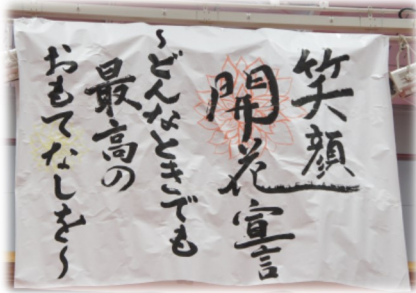 笑顔
開花宣言
~どんなときでも
最高の
おもてなしを~